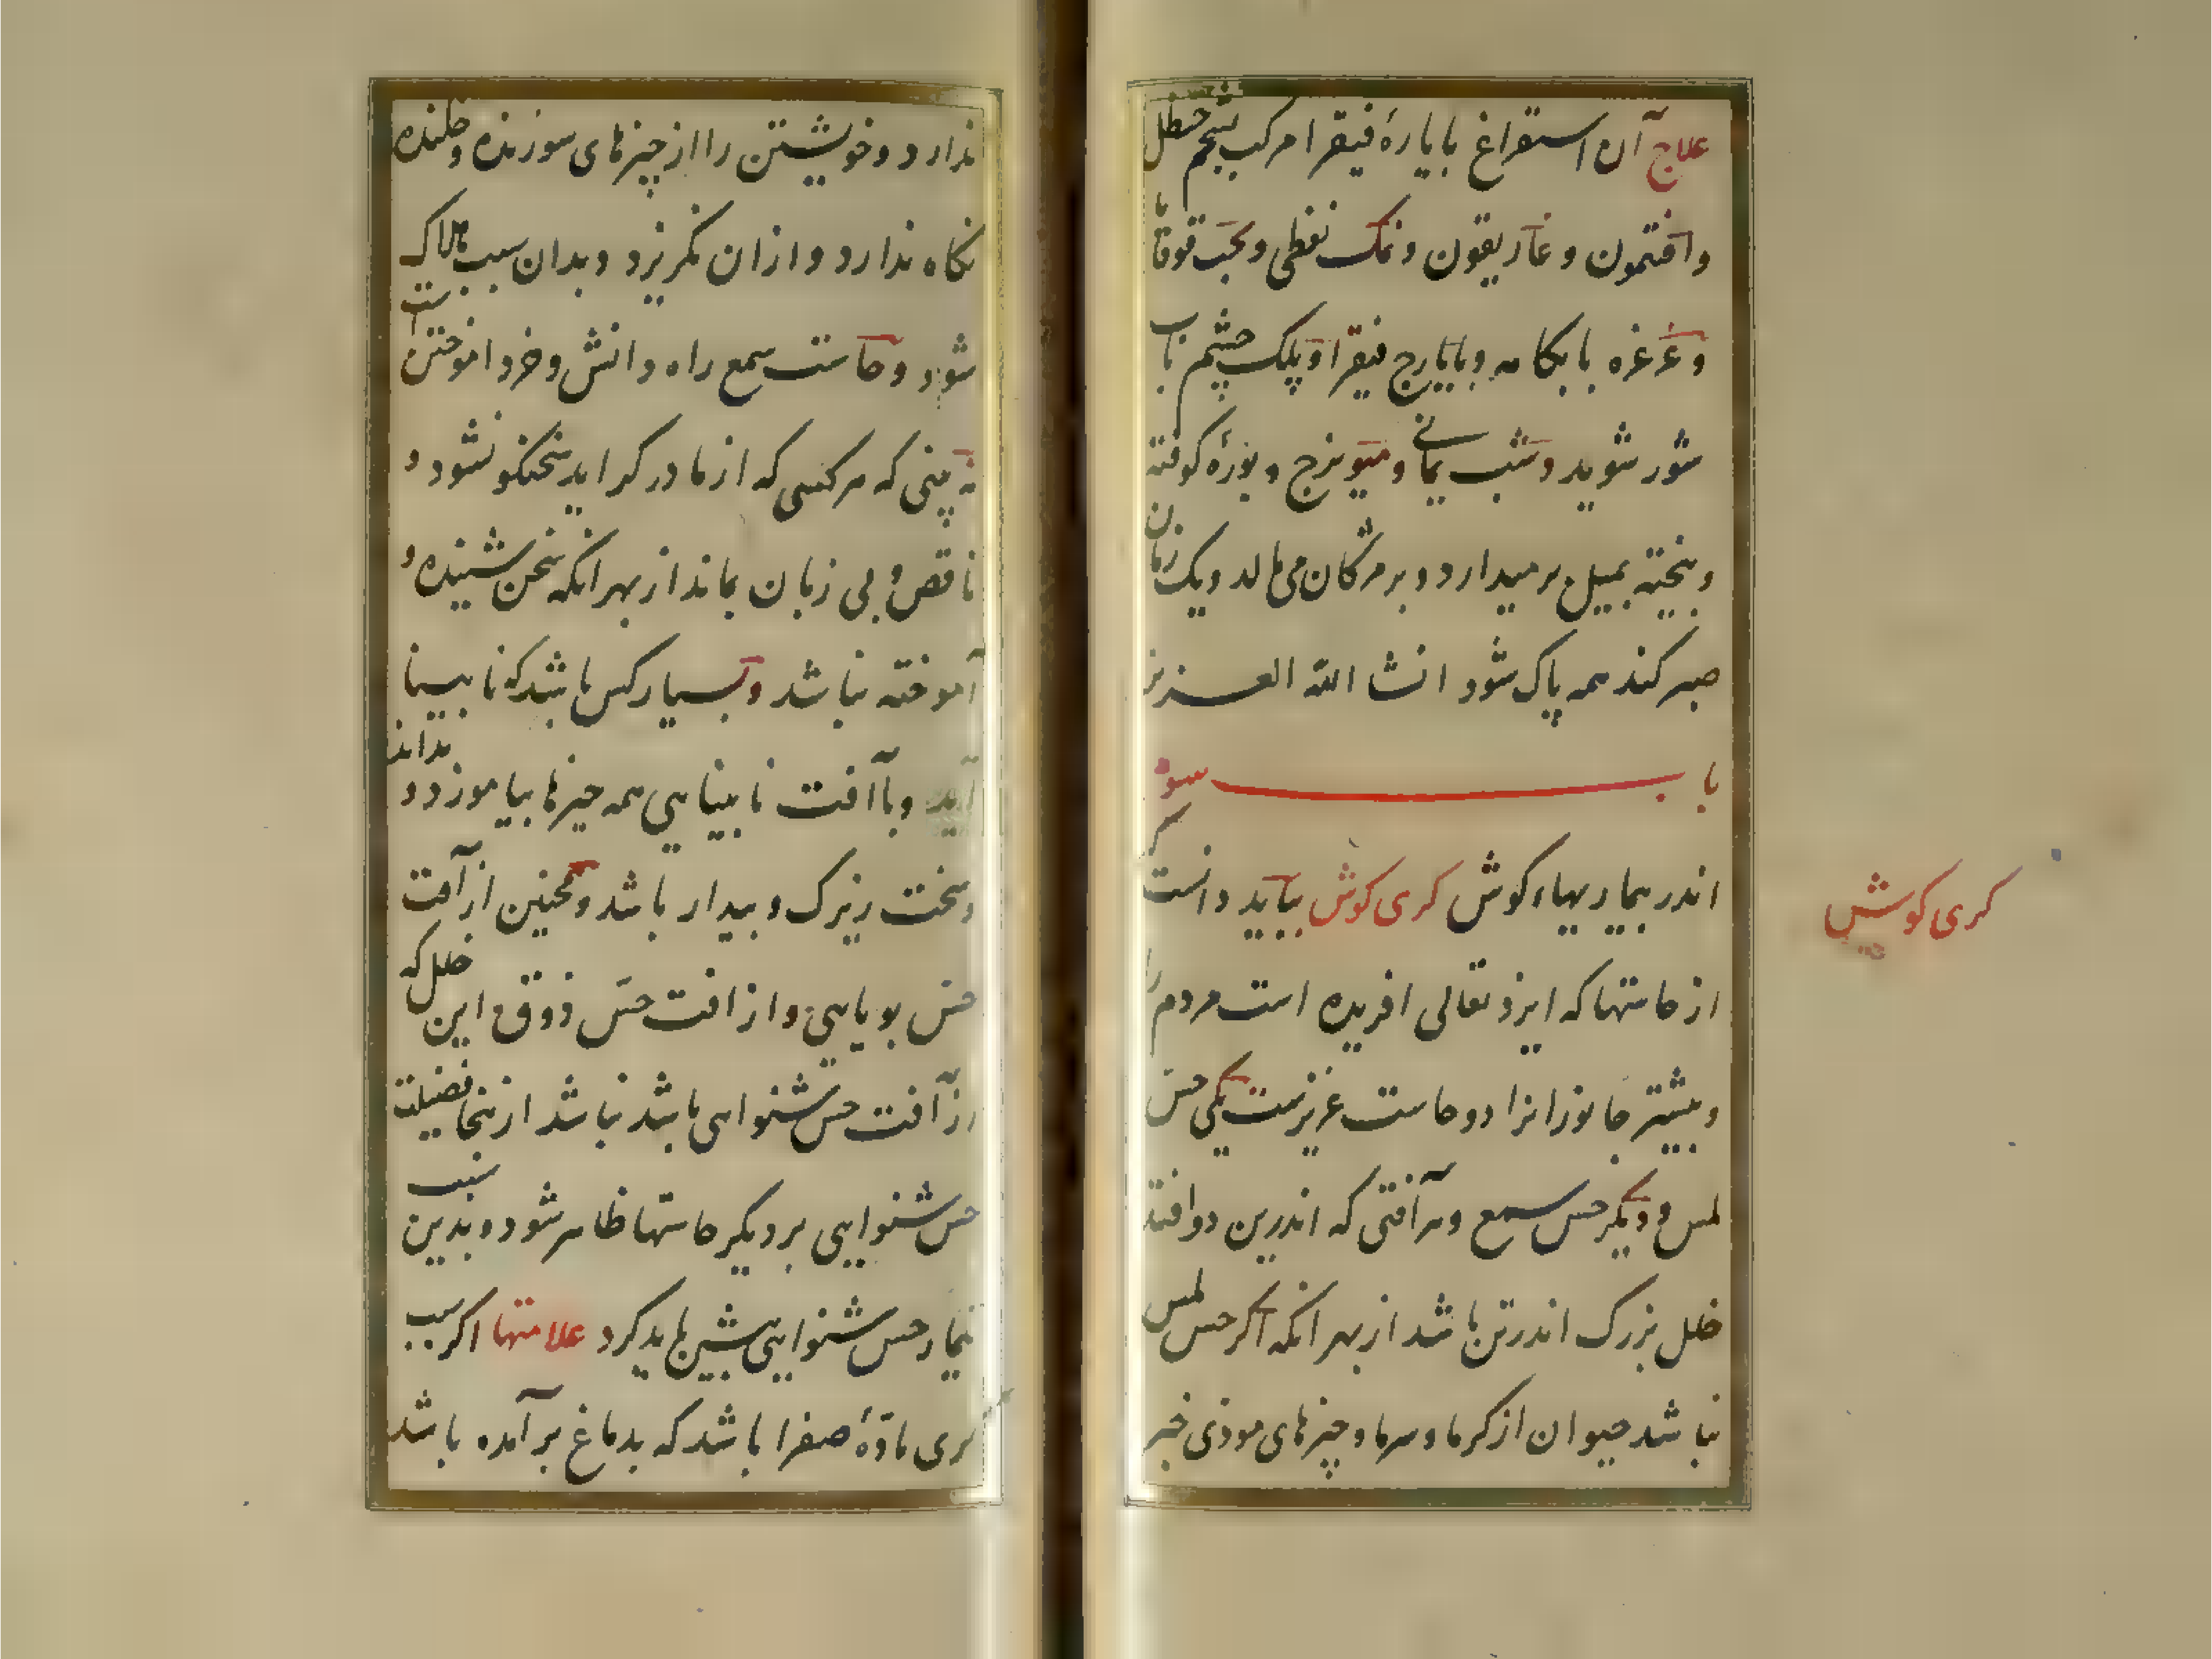 علاج آن استفراغ بایارهٔ فیقرا مرکب بشحم حنظل
وافتمون و غاریقون و نمک نفطی و بحب قوقایا
و غرغره بابکامه و بایارج فیقرا و پلک چشم باب
شور شوید و شب یمانی و میویزج و بورهٔ کوفته
و بیخته بمیل بر میدارد و بر مژکان می مالد و یک زمان
صبر کند همه پاک شود انشا الله العزیز
باب سوم
اندر بیماریهاء کوش کری کوش بباید دانست که
کری کوش
از حاستها که ایزد تعالی افریده است مردم را
و بیشتر جانورانرا دو حاست عزیزست یکی حس
لمس و دیکر حس سمع و هر آفتی که اندرین دو افتد
خلل بزرک اندر تن باشد از بهر انکه اکر حس لمس
نباشد حیوان از کرما و سرما و چیزهای موذی خبر
ندارد و خویشتن را از چیزهای سوزنده و خلنده
نکاه ندارد و ازان نکریزد و بدان سبب هلاک
شود و حاست سمع راه دانش و خرد اموختن است
نه بینی که هر کسی که از مادر کر اید سخنکو نشود و
ناقص و بی زبان بماند از بهر انکه سخن شنیده و
آموخته نباشد و بسیار کس باشد که نابینا
آید و با آفت نابینایی همه چیزها بیاموزد و بداند
و سخت زیرک و بیدار باشد و همچنین از آفت
حس بویایی و از افت حس ذوق این خلل که
از آفت حس شنوایی باشد نباشد ازینجا فضیلت
حس شنوایی بر دیکر حاستها ظاهر شود و بدین سبب
تیمار حس شنوایی بیشین باید کرد علامتها اکر سبب
کری مادّهٔ صفرا باشد که بدماغ بر آمده باشد